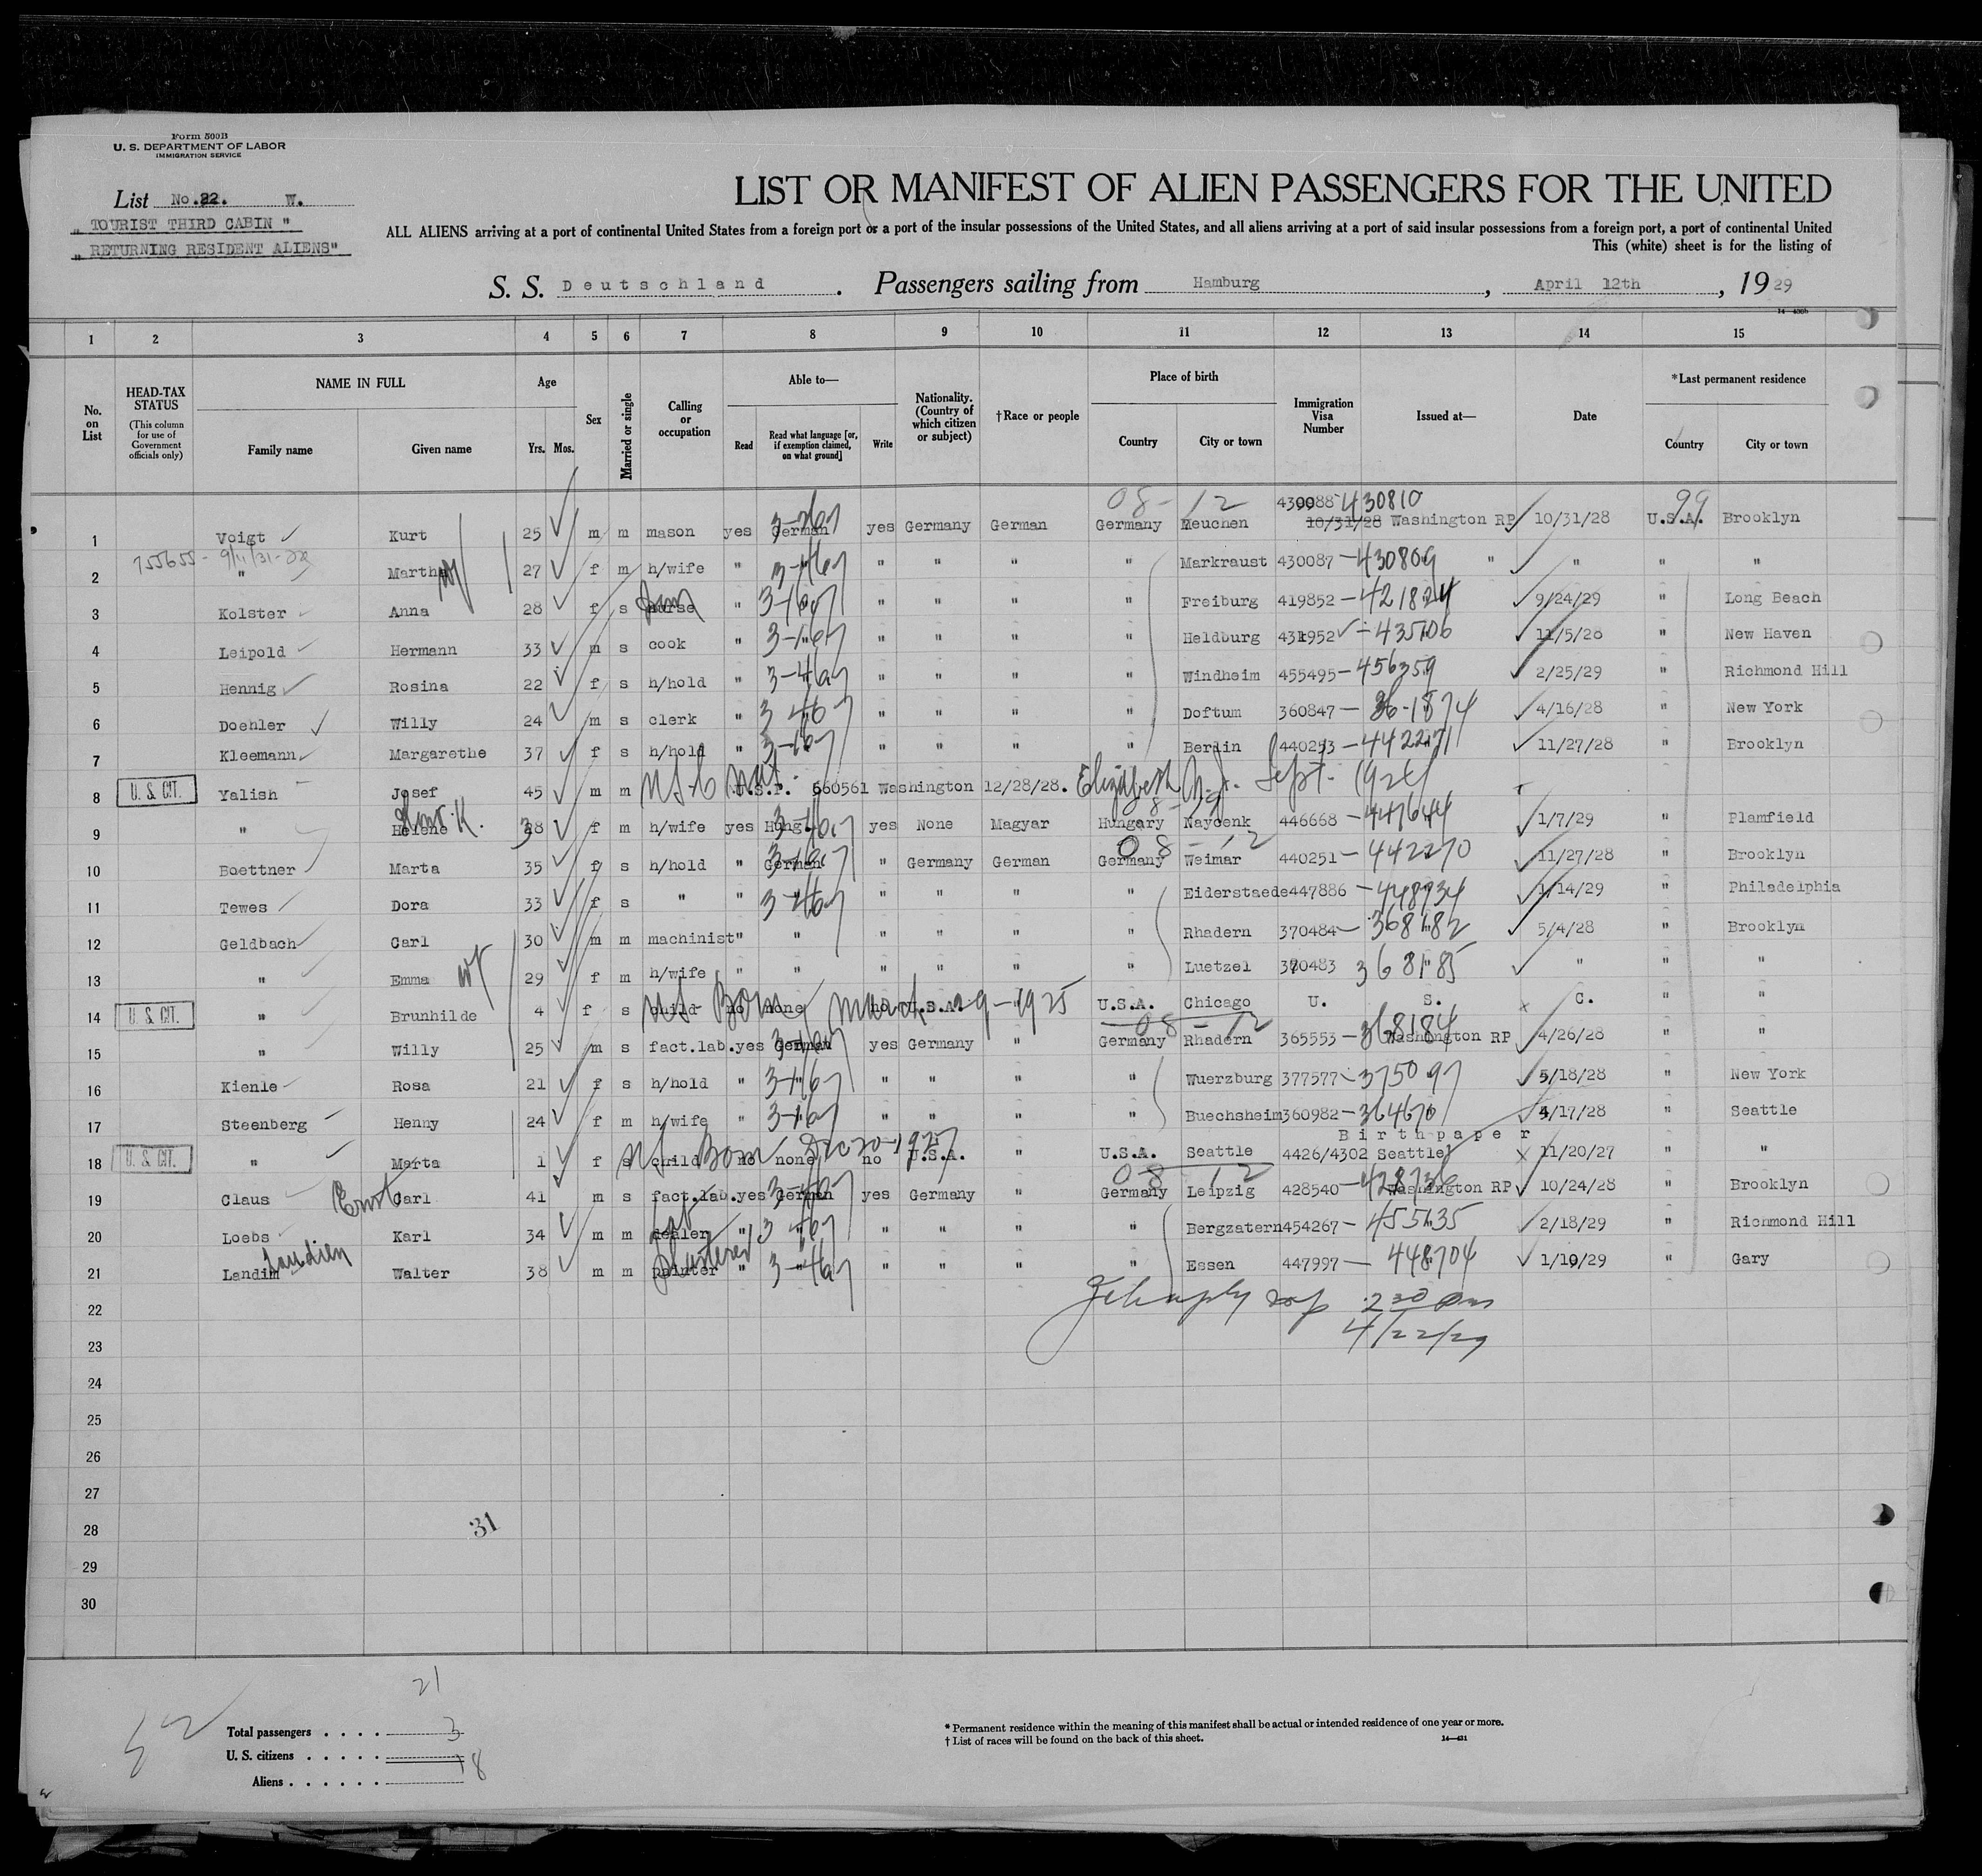 Form 500B
U. S. DEPARTMENT OF LABOR
IMMIGRATION SERVICE
List No. 22. W.
" TOURIST THIRD CABIN "
" RETURNING RESIDENT ALIENS"
LIST OR MANIFEST OF ALIEN PASSENGERS FOR THE UNITED
ALL ALIENS arriving at a port of continental United States from a foreign port or a port of the insular possessions of the United States, and all aliens arriving at a port of said insular possessions from a foreign port, a port of continental United
This (white) sheet is for the listing of
S. S. Deutschland . Passengers sailing from Hamburg , April 12th , 1929
1 2 3 4 5 6 7 8 9 10 11 12 13 14 15
No. on List
HEAD-TAX STATUS (This column for use of Government officials only)
NAME IN FULL Family name Given name
Age Yrs. Mos.
Sex
Married or single
Calling or occupation
Able to— Read Read what language [or, if exemption claimed, on what ground] Write
Nationality. (Country of which citizen or subject)
†Race or people
Place of birth Country City or town
Immigration Visa Number
Issued at—
Date
*Last permanent residence Country City or town
08- 12 430088-430810 99
1 Voigt Kurt 25 m m mason yes German yes Germany German Germany Meuchen 10/31/28 Washington RP 10/31/28 U.S.A. Brooklyn
755655- 9/11/31-
2 " Martha 27 f m h/wife " " " " " Markraust 430087 -430809 " " " "
3 Kolster Anna 28 f s nurse " " " " " Freiburg 419852 -421824 9/24/29 " Long Beach
4 Leipold Hermann 33 m s cook " " " " " Heldburg 431952 -435106 11/5/28 " New Haven
5 Hennig Rosina 22 f s h/hold " " " " " Windheim 455495 -456359 2/25/29 " Richmond Hill
6 Doehler Willy 24 m s clerk " " " " " Doftum 360847 - 36-1874 4/16/28 " New York
7 Kleemann Margarethe 37 f s h/hold " " " " " Berlin 440253 -442271 11/27/28 " Brooklyn
8 U. S. CIT. Yalish Josef 45 m m U.S.P. 560561 Washington 12/28/28. Elizabeth N.J. Sept. 1924
9 " Helene 38 f m h/wife yes Hung. yes None Magyar Hungary Naycenk 446668 -447644 1/7/29 " Plamfield
08 - 12
10 Boettner Marta 35 f s h/hold " German " Germany German Germany Weimar 440251 -442270 11/27/28 " Brooklyn
11 Tewes Dora 33 f s " " " " " " " Eiderstaede 447886 -448934 1/14/29 " Philadelphia
12 Geldbach Carl 30 m m machinist " " " " " " Rhadern 370484 -368182 5/4/28 " Brooklyn
13 " Emma 29 f m h/wife " " " " " " Luetzel 370483 368185 " " "
14 U. S. CIT. " Brunhilde 4 f s child no none no U.S.A. " U.S.A. Chicago U. S. C. " "
US Born March 29-1925
08 - 12
15 " Willy 25 m s fact.lab. yes German yes Germany " Germany Rhadern 365553 -368184 Washington RP 4/26/28 " "
16 Kienle Rosa 21 f s h/hold " " " " " " Wuerzburg 377577 -375097 5/18/28 " New York
17 Steenberg Henny 24 f m h/wife " " " " " " Buechsheim 360982 -364670 4/17/28 " Seattle
Birthpaper
18 U. S. CIT. " Marta 1 f s child no none no U.S.A. " U.S.A. Seattle 4426/4302 Seattle 11/20/27 " "
08 12
19 Claus Ernst Carl 41 m s fact.lab. yes German yes Germany " Germany Leipzig 428540 -428736 Washington RP 10/24/28 " Brooklyn
20 Loebs Karl 34 m m dealer " " " " " " Bergzatern 454267 - 455635 2/18/29 " Richmond Hill
21 Landim Landien Walter 38 m m painter plasterer " " " " " " Essen 447997 - 448704 1/10/29 " Gary
22 2 30 pm
23 4/22/29
24
25
26
27
28 31
29
30
21
52
Total passengers . . . . 3
U. S. citizens . . . . . 18
Aliens . . . . . .
* Permanent residence within the meaning of this manifest shall be actual or intended residence of one year or more.
† List of races will be found on the back of this sheet.